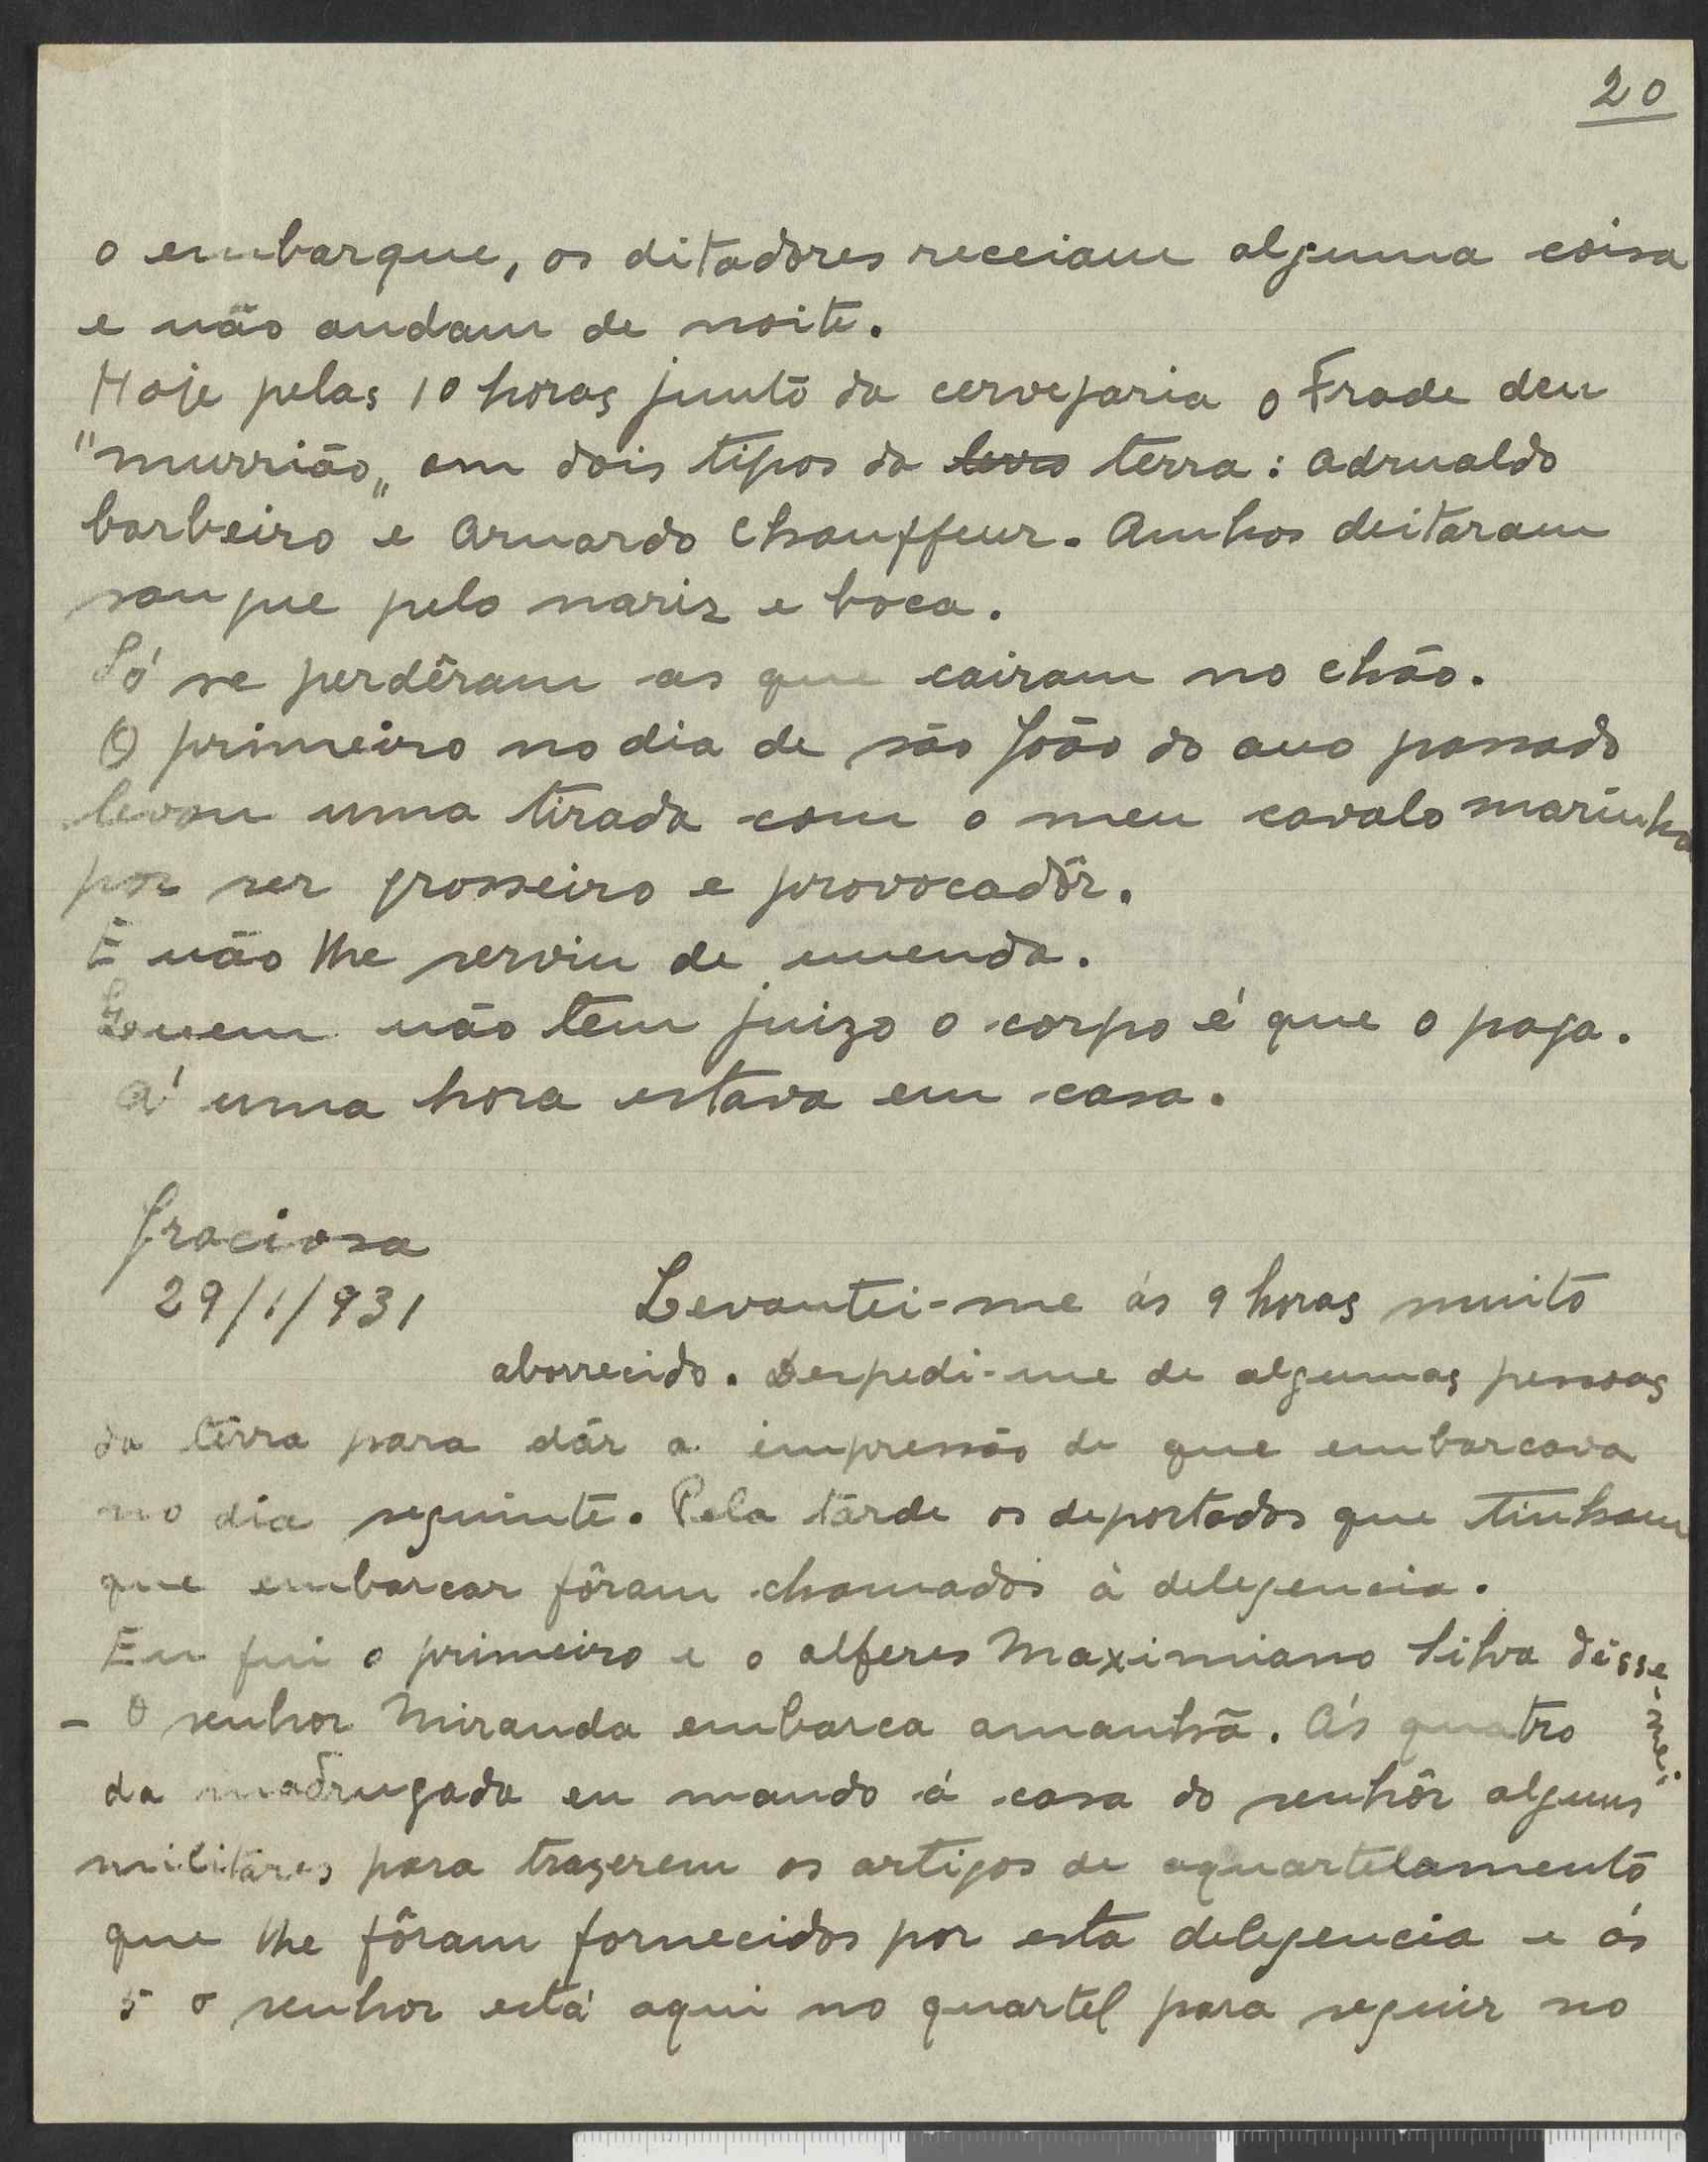 20
o embarque, os ditadores receiam alguma coisa
e não andam de noite.
Hoje pelas 10 horas junto da cervejaria o Frade deu
"murrião„ em dois tipos da terra: Adrualdo
barbeiro e Arnardo Chauffeur. Ambos deitaram
sangue pelo nariz e boca.
Só se perdêram as que cairam no chão.
O primeiro no dia de são João do ano passado
levou uma tirada com o meu cavalo marinho
por ser grosseiro e provocadôr.
E não lhe serviu de emenda.
Quem não tem juizo o corpo é que o paga.
Á uma hora estava em casa.
Graciosa
29/1/931 Levantei-me ás 9 horas muito
aborrecido. Despedi-me de algumas pessoas
da terra para dár a impressão de que embarcava
no dia seguinte. Pela tarde os deportados que tinham
que embarcar fôram chamados á delegencia.
Eu fui o primeiro e o alferes Maximiano Silva disse-me:
- O senhor Miranda embarca amanhã. Ás quatro
da madrugada eu mando á casa do senhôr alguns
militáres para trazerem os artigos de aquartelamento
que lhe fôram fornecidos por esta delegencia e ás
5 o senhor está aqui no quartel para seguir no